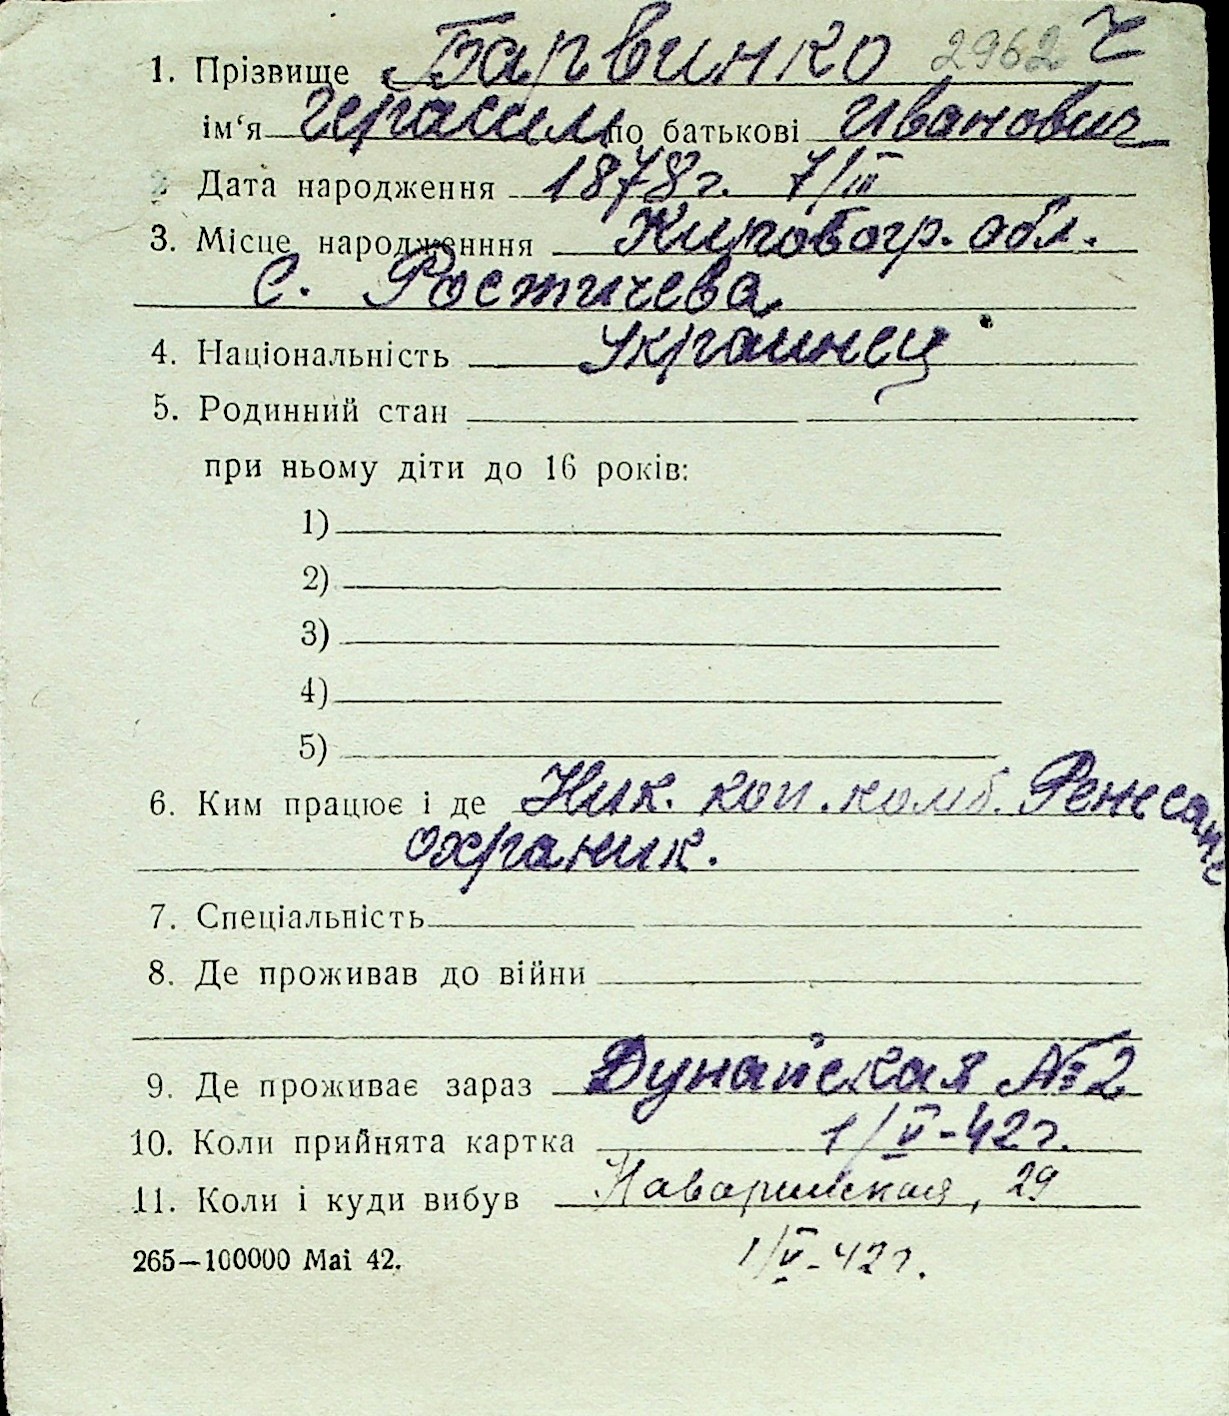 1. Прізвище Барвинко 2962 Ч
ім‘я Герасим по батькові Иванович
2 Дата народження 1878г. 7/III
3. Місце народженння Кировогр. обл.
с. Ростичева
4. Національність Украинец
5. Родинний стан
при ньому діти до 16 років:
1)
2)
3)
4)
5)
6. Ким працює і де Ник. коп. комб.
охраник.
7. Спеціальність
8. Де проживав до війни
9. Де проживає зараз Дунайская №2
10. Коли прийнята картка 1/V-42г.
11. Коли і куди вибув Наваринская, 29
265—100000 Маі 42. 1/V-42г.